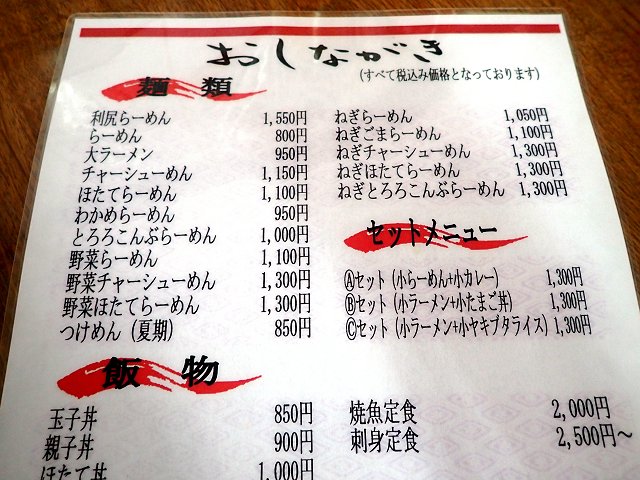 おしながき
(すべて税込み価格となっております)
麺類
利尻らーめん 1,550円
らーめん 800円
大ラーメン 950円
チャーシューめん 1,150円
ほたてらーめん 1,100円
わかめらーめん 950円
とろろこんぶらーめん 1,000円
野菜らーめん 1,100円
野菜チャーシューめん 1,300円
野菜ほたてらーめん 1,300円
つけめん (夏期) 850円
ねぎらーめん 1,050円
ねぎごまらーめん 1,100円
ねぎチャーシューめん 1,300円
ねぎほたてらーめん 1,300円
ねぎとろろこんぶらーめん 1,300円
セットメニュー
Ⓐセット (小らーめん+小カレー) 1,300円
Ⓑセット (小ラーメン+小たまご丼) 1,300円
Ⓒセット (小ラーメン+小ヤキブタライス) 1,300円
飯物
玉子丼 850円
親子丼 900円
ほたて丼 1,000円
焼魚定食 2,000円
刺身定食 2,500円～